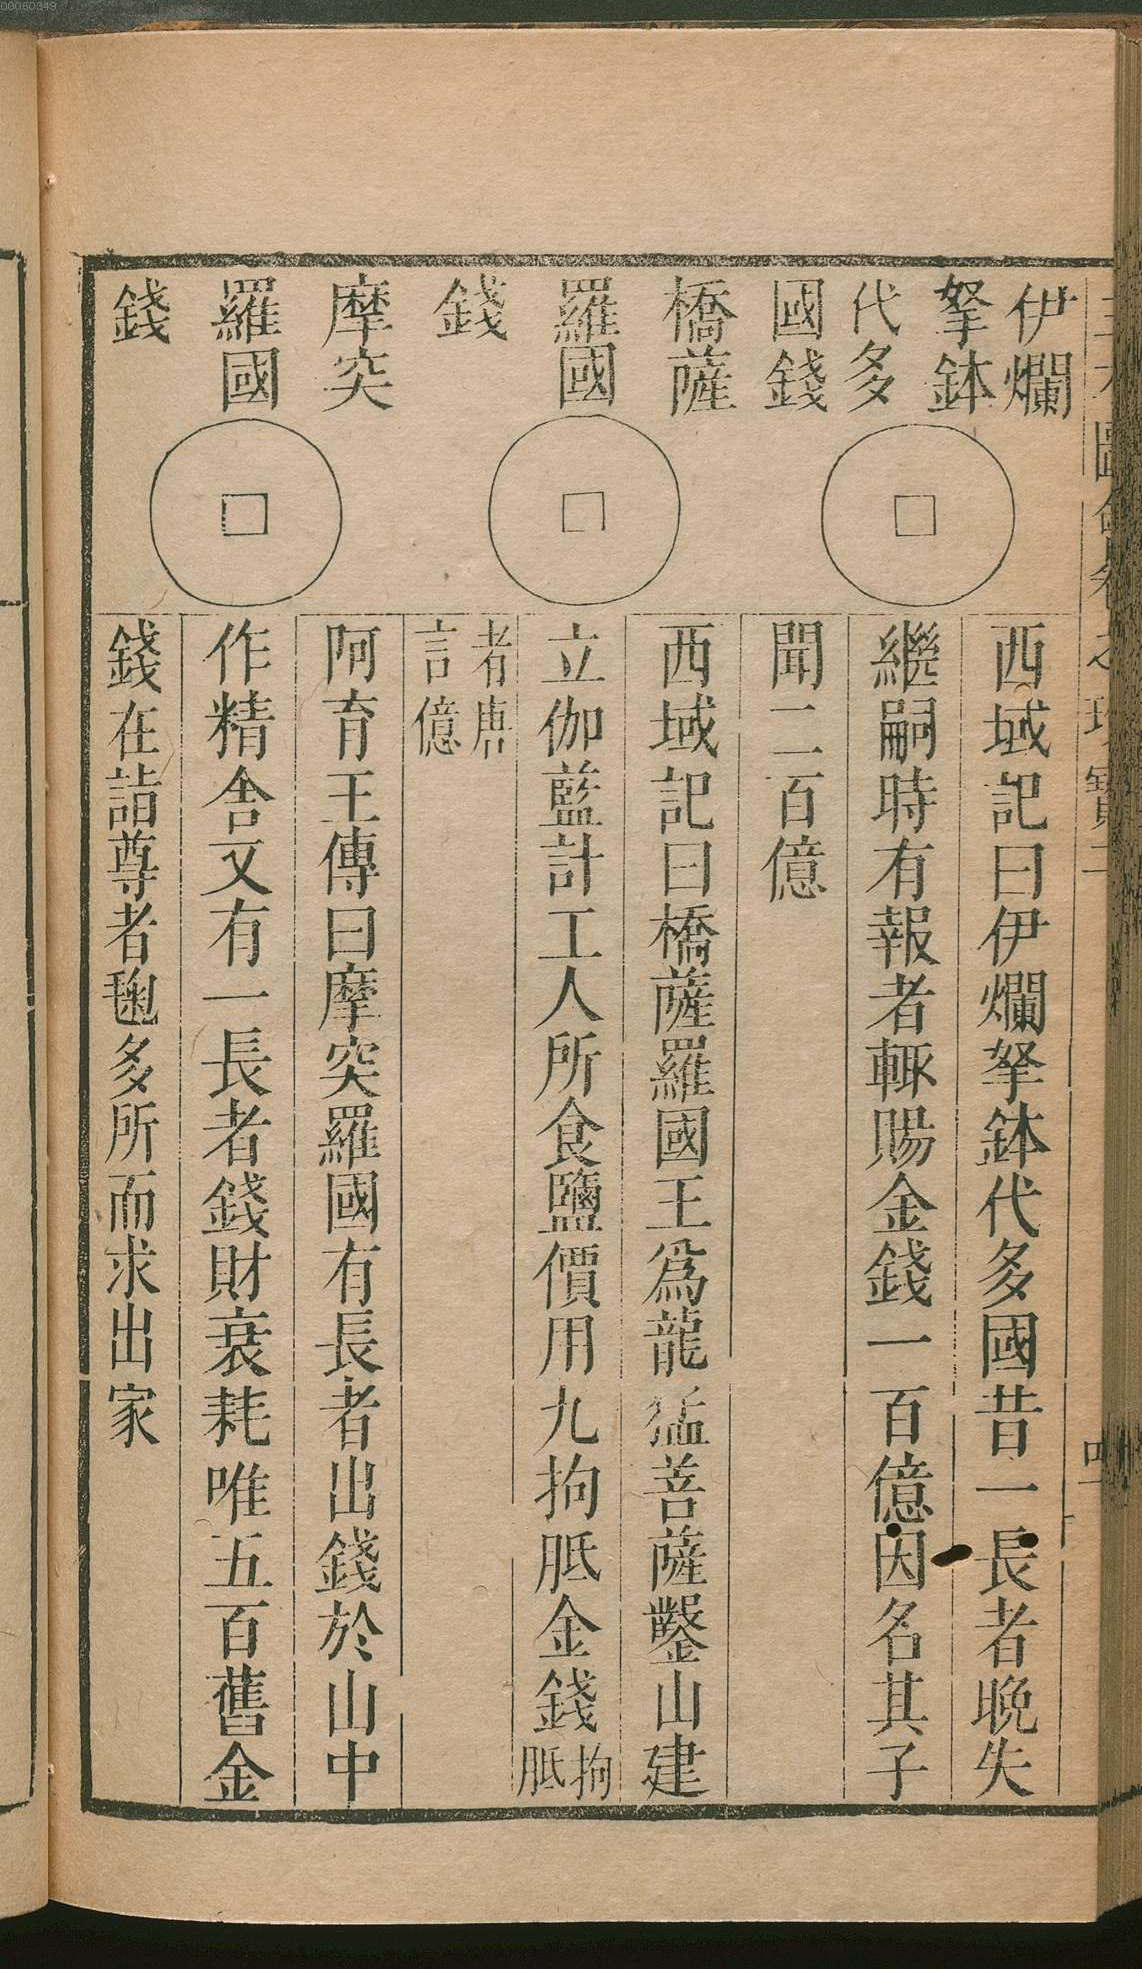 00060349
伊爛
拏鉢
代多
國錢
西域記曰伊爛拏鉢代多國昔一長者晚失
繼嗣時有報者輒賜金錢一百億因名其子
聞二百億
橋薩
羅國
錢
西域記曰橋薩羅國王爲龍猛菩薩鑿山建
立伽藍計工人所食鹽價用九拘胝金錢拘
胝
者唐
言億
摩突
羅國
錢
阿育王傳曰摩突羅國有長者出錢於山中
作精舍又有一長者錢財衰耗唯五百舊金
錢在詣尊者毱多所而求出家